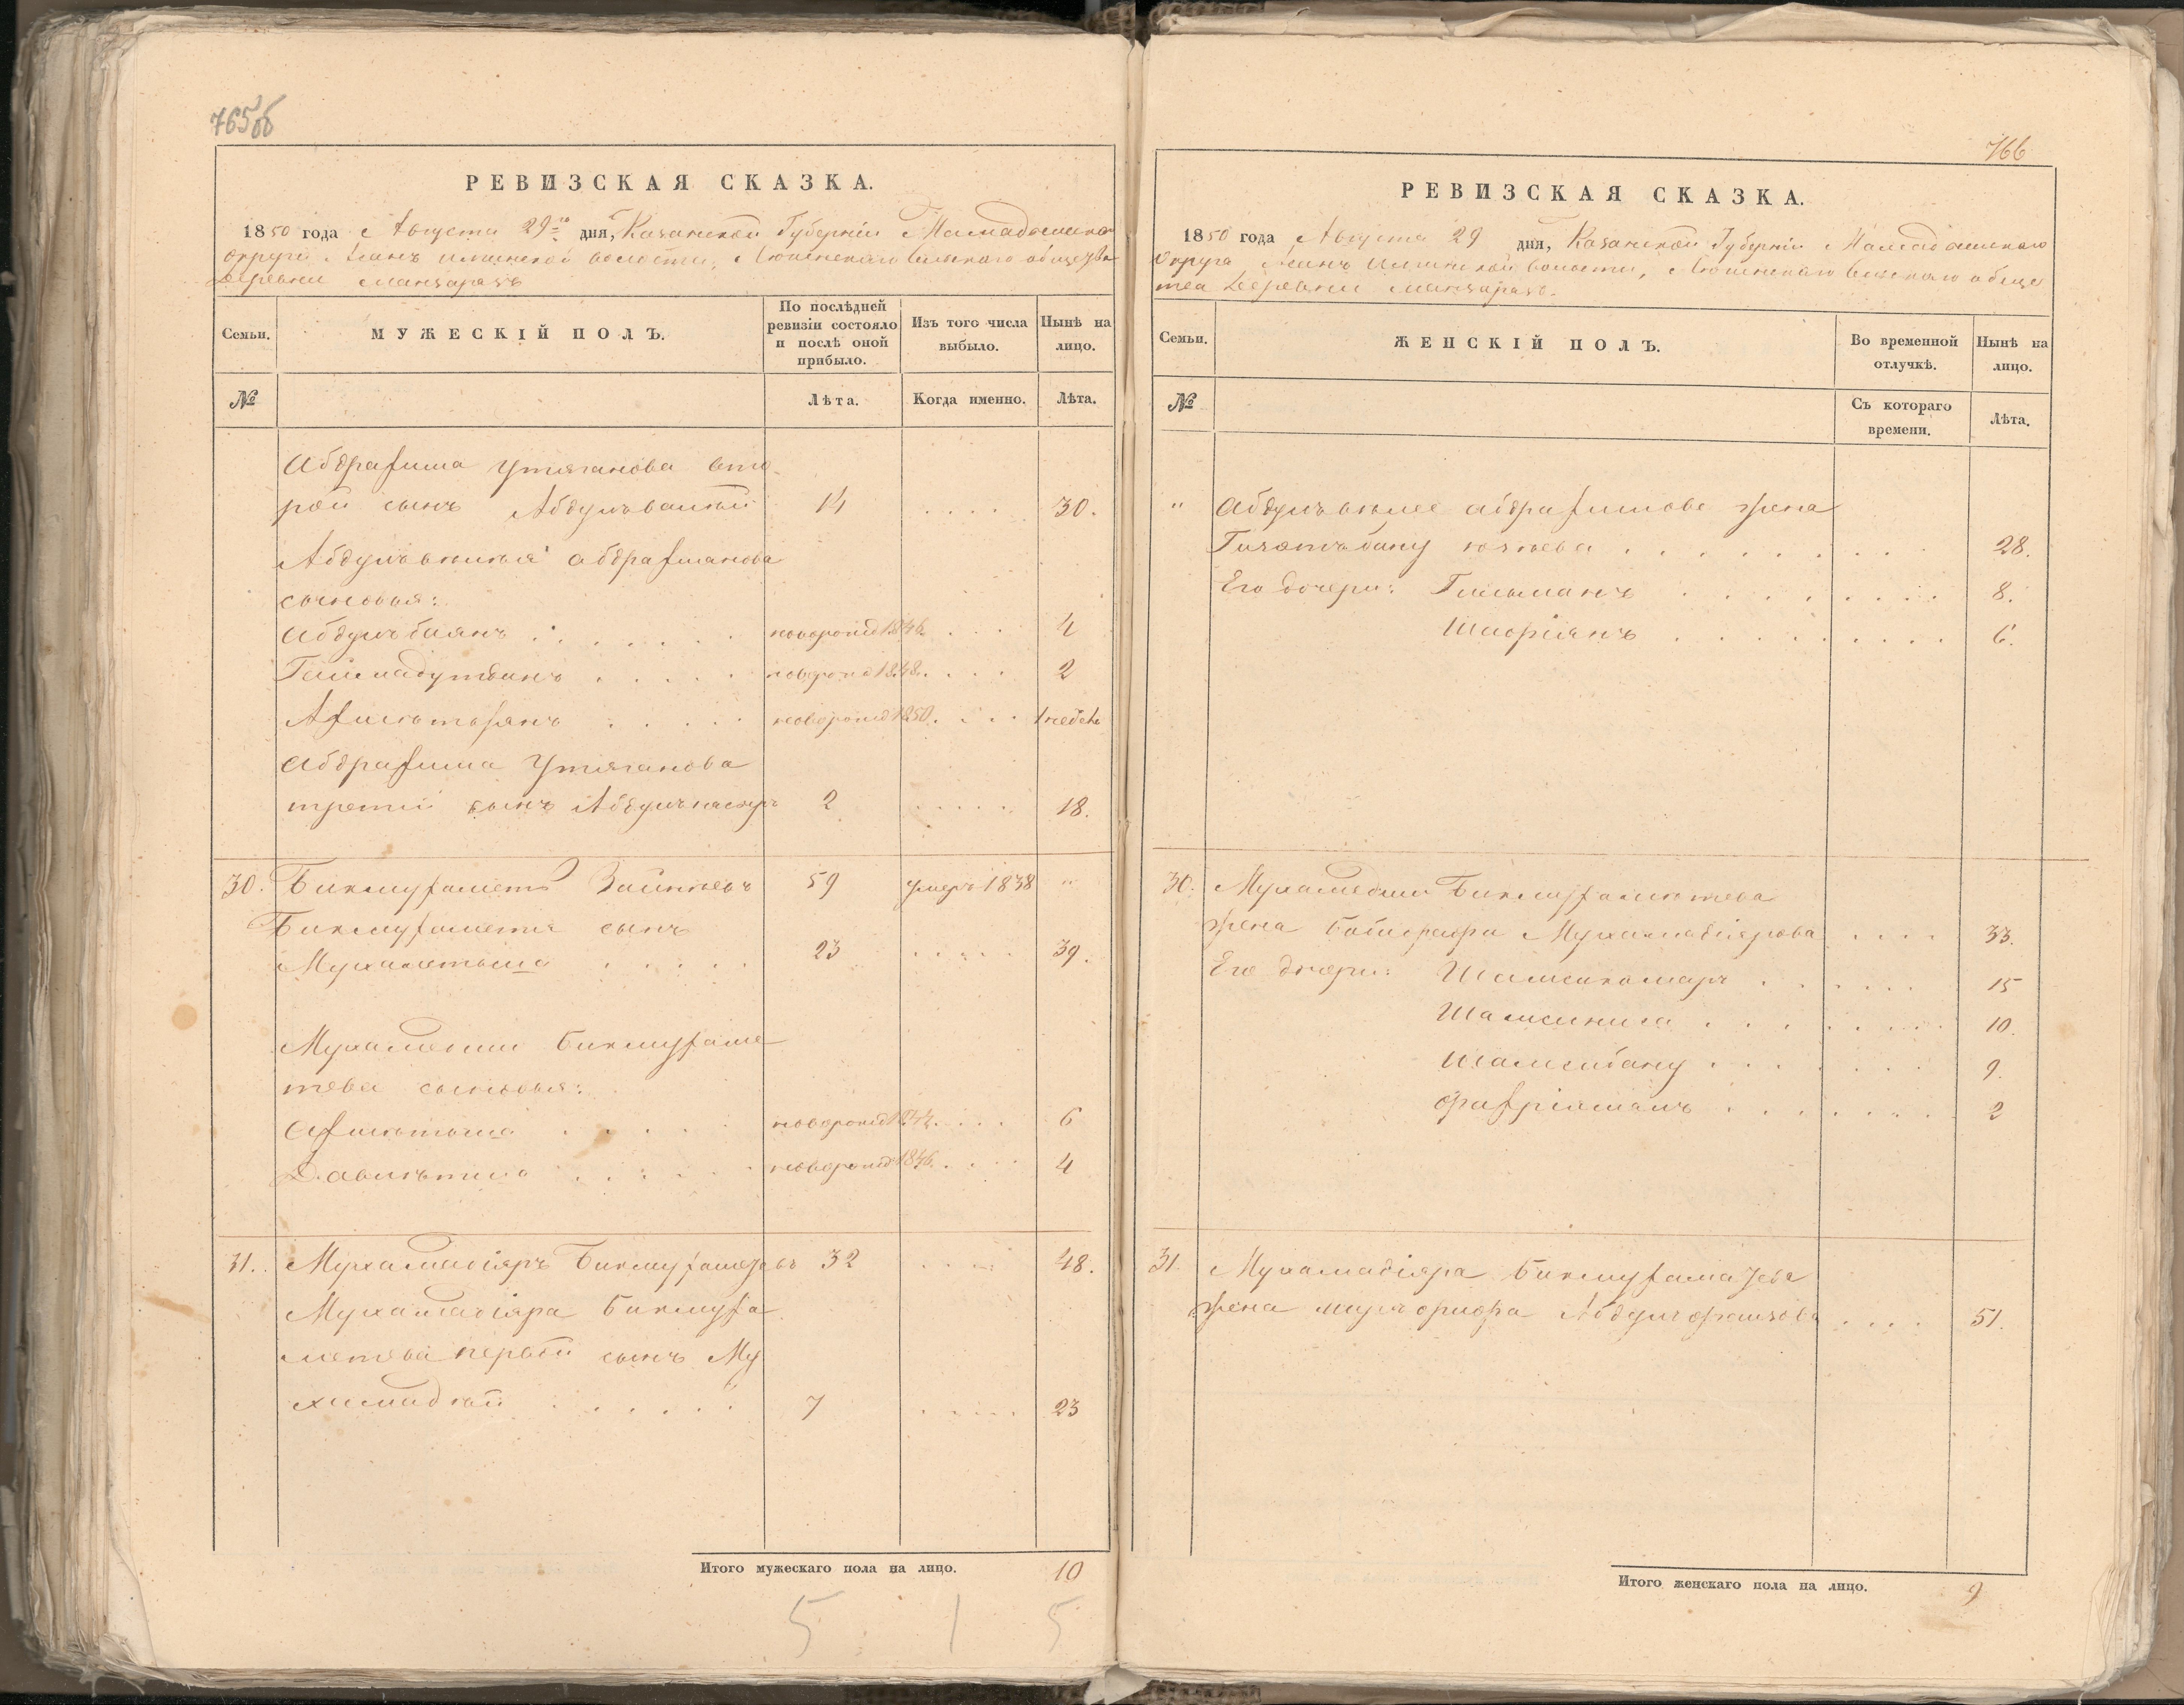 765об
РЕВИЗСКАЯ СКАЗКА.
1850 года Августа 29го дня, Казанской Губерніи Мамадышскаго
округа волости, сельскаго общества
Деревни
Семьи.
МУЖЕСКІЙ ПОЛЪ.
По послѣдней
ревизіи состояло
и послѣ оной
прибыло.
Изъ того числа
выбыло.
Нынѣ на
лицо.
№
Лѣта.
Когда именно.
Лѣта.
Абдрафима Утяганова вто
рой сынъ Абдулъвалѣй 14 . . . . 30.
Абдрафманова
сыновья:
Абдулъбаянъ . . . . . новорожд 1846. . . . 4
новорожд 1848. . . . 2
новорожд 1850. . . . 1 недель
Абдрафима Утяганова
третій сынъ 2 . . . . 18.
30. Бикмуфаметъ Заитовъ 59 умеръ 1838 "
Бикмуфаметя сынъ
Мухаметьша . . . . . 23 . . . . . 39.
Мухаметши Бикмуфаме
тева сыновья:
Афметьша . . . . новорожд 1844. . . . 6
Давлетша . . . . . новорожд 1846. . . . 4
31. Мухамадіяръ 32 . . . . 48.
Мухамадіяра Бикмуфа
метева первой сынъ Му
хамадѣй . . . . . . 7 . . . . . 23
Итого мужескаго пола на лицо. 10
5 1 5
766
РЕВИЗСКАЯ СКАЗКА.
1850 года Августа 29 дня, Казанской Губерніи Мамадышскаго
Округа волости, сельскаго общес
тва Деревни
Семьи.
ЖЕНСКІЙ ПОЛЪ.
Во временной
отлучкѣ.
Нынѣ на
лицо.
№
Съ котораго
времени.
Лѣта.
" Абдулъвалея Абдрафимова жена
. . . . . . . . 28.
Его дочери: Гильманъ . . . . . . . . 8.
Шафріянъ . . . . . . . . . 6.
30. Мухаметши Бикмуфаметева
жена Мухамадіярова . . . . 33.
Его дочери: Шамсикамаръ . . . . . . 15
Шамсиниса . . . . . . . . 10.
Шамсибану . . . . . . . 9.
. . . . . . . . 2
31. Мухамадіяра
жена . . . . 51.
Итого женскаго пола на лицо. 9